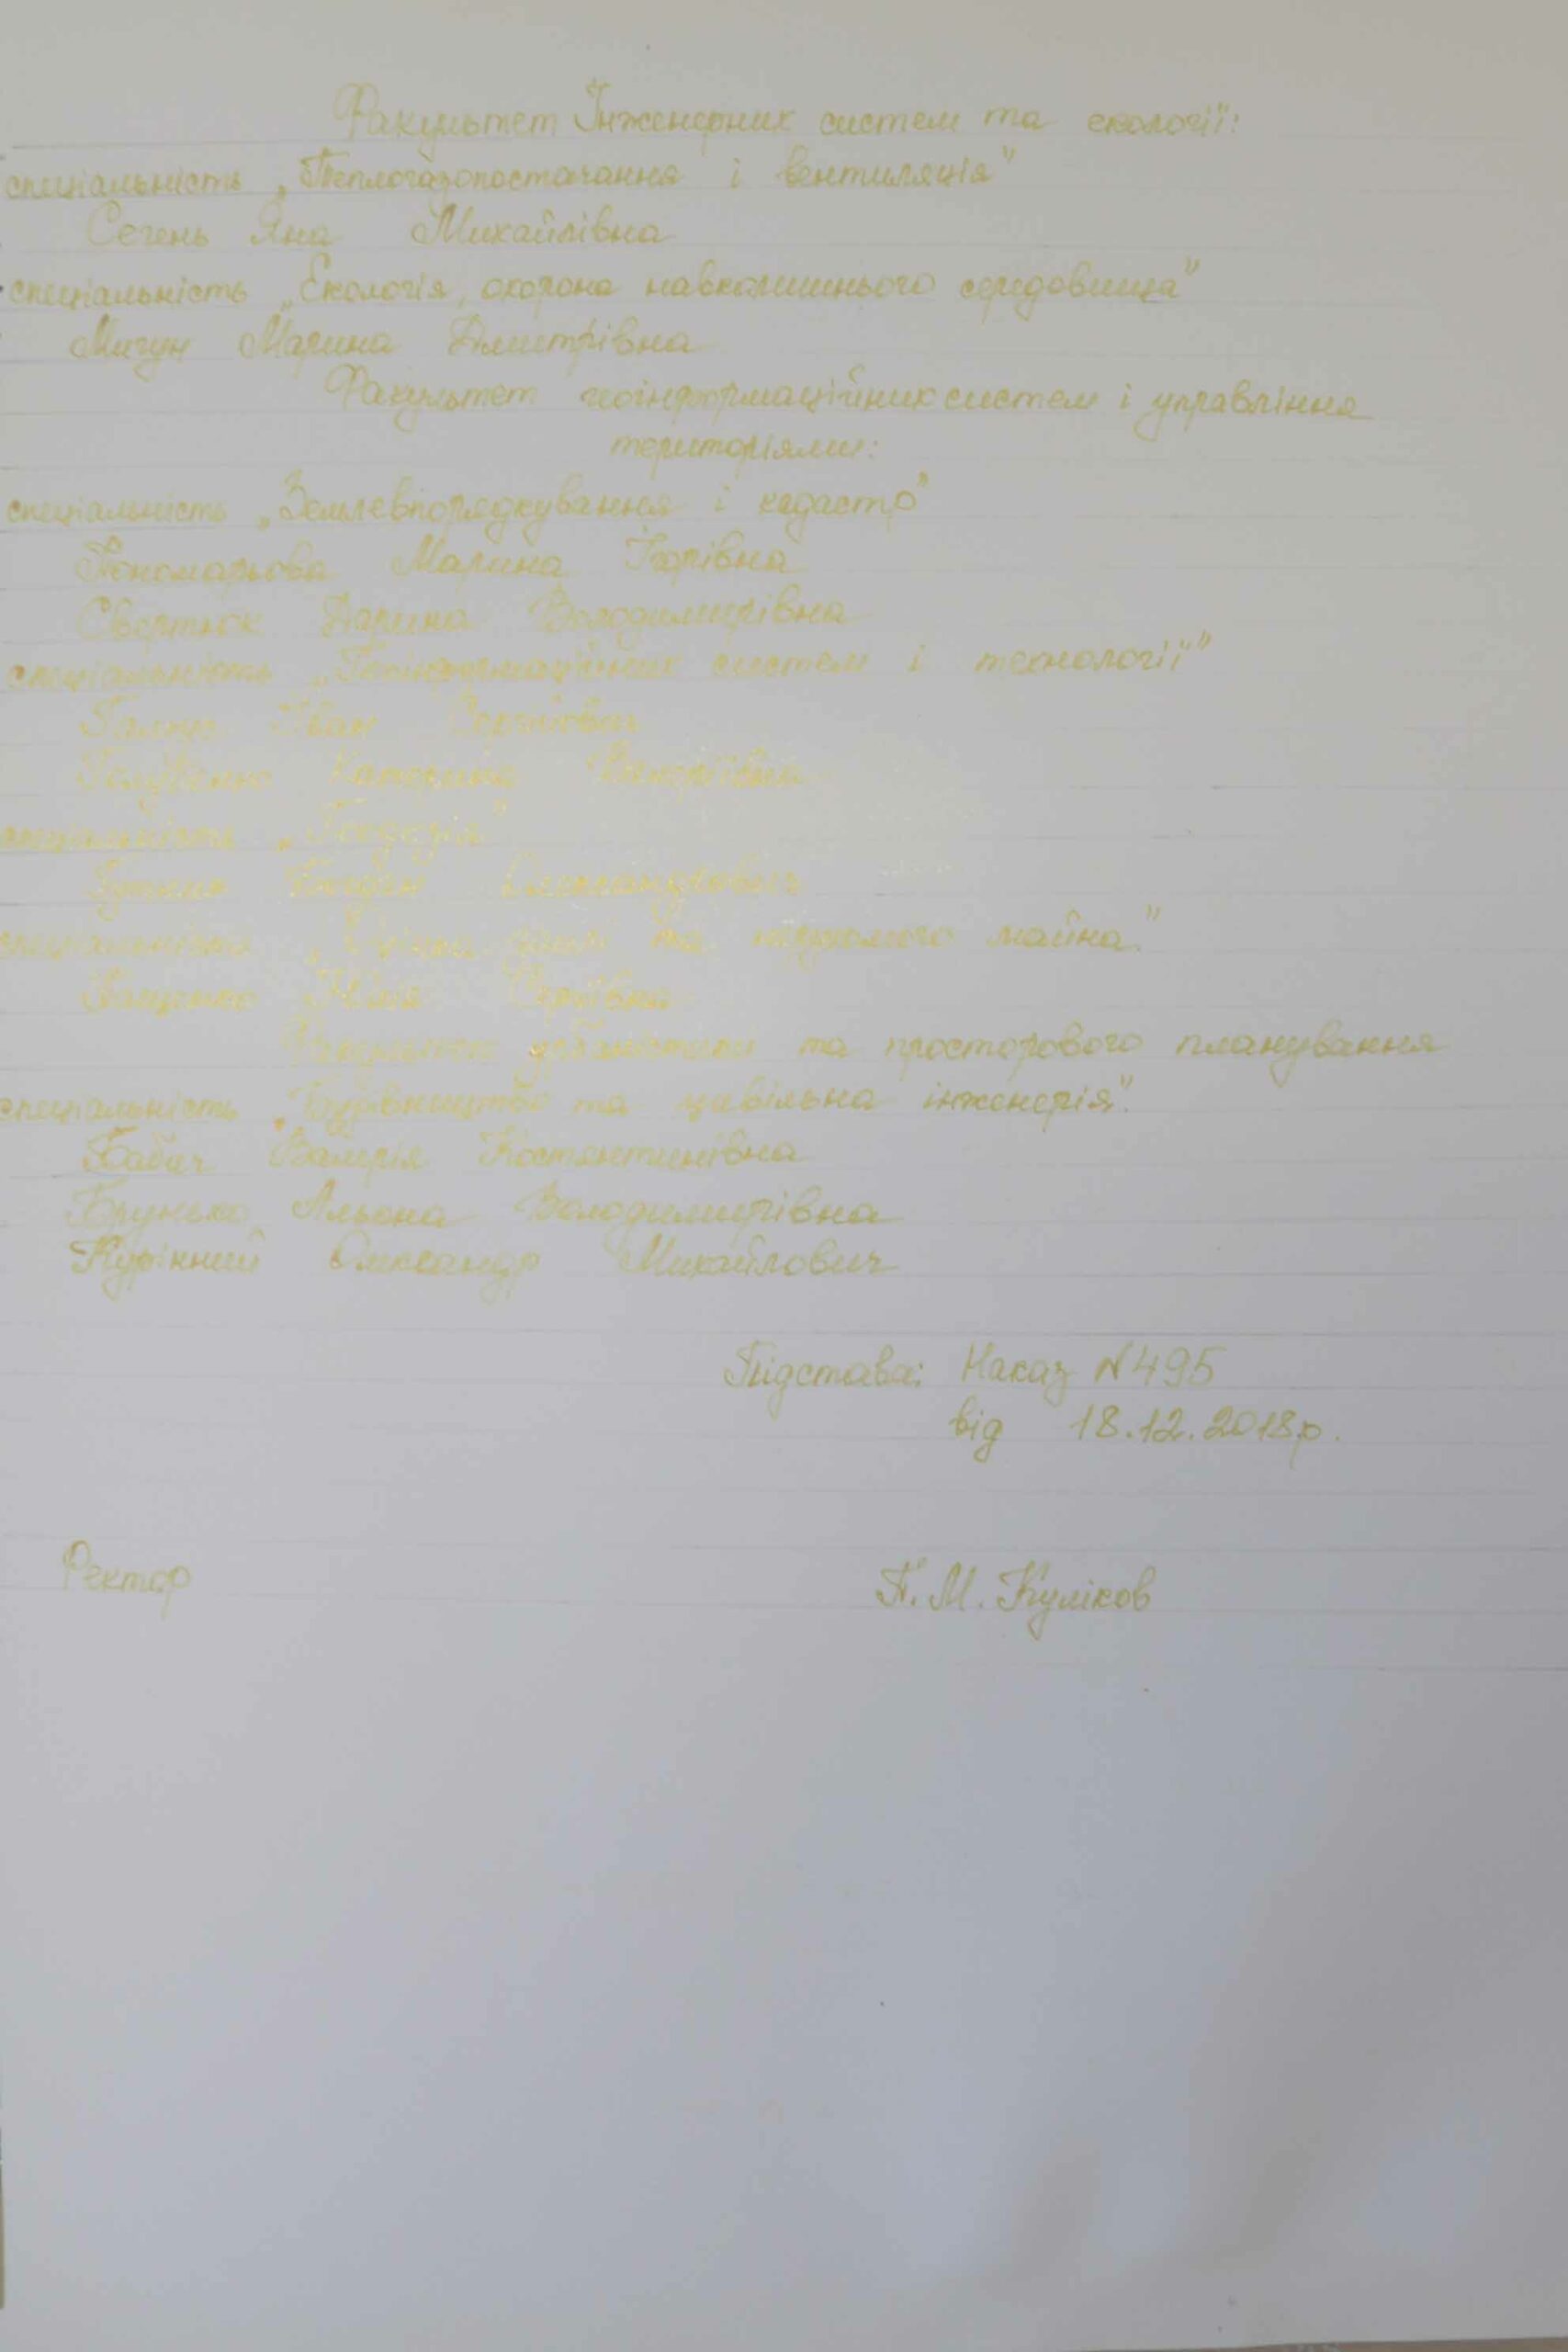 Факультет Інженерних систем та екології:
спеціальність „Теплогазопостачання і вентиляція"
Сегень Яна Михайлівна
спеціальність „Екологія, охорона навколишнього середовища"
Мигун Марина Дмитрівна
Факультет геоінформаційних систем і управління
територіями:
спеціальність „Землевпорядкування і кадастр"
Пономарьова Марина Ігорівна
Свертнюк Дарина Володимирівна
спеціальність „Геоінформаційних систем і технології"
Іван Сергійович
Голубенко Катерина Валеріївна
спеціальність „Геодезія"
Богдан Олександрович
спеціальність „Оцінка землі та нерухомого майна."
Юлія Сергіївна
Факультет урбаністики та просторового планування
спеціальність „Будівництво та цивільна інженерія".
Бабич Валерія Костянтинівна
Брунько Альона Володимирівна
Курінний Олександр Михайлович
Підстава: Наказ N495
від 18.12.2018р.
Ректор П.М. Куліков